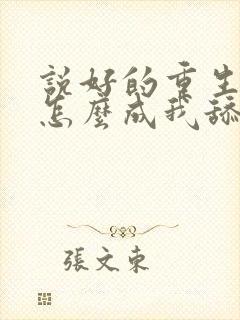 說好的重生
怎麼成我舔
張文東